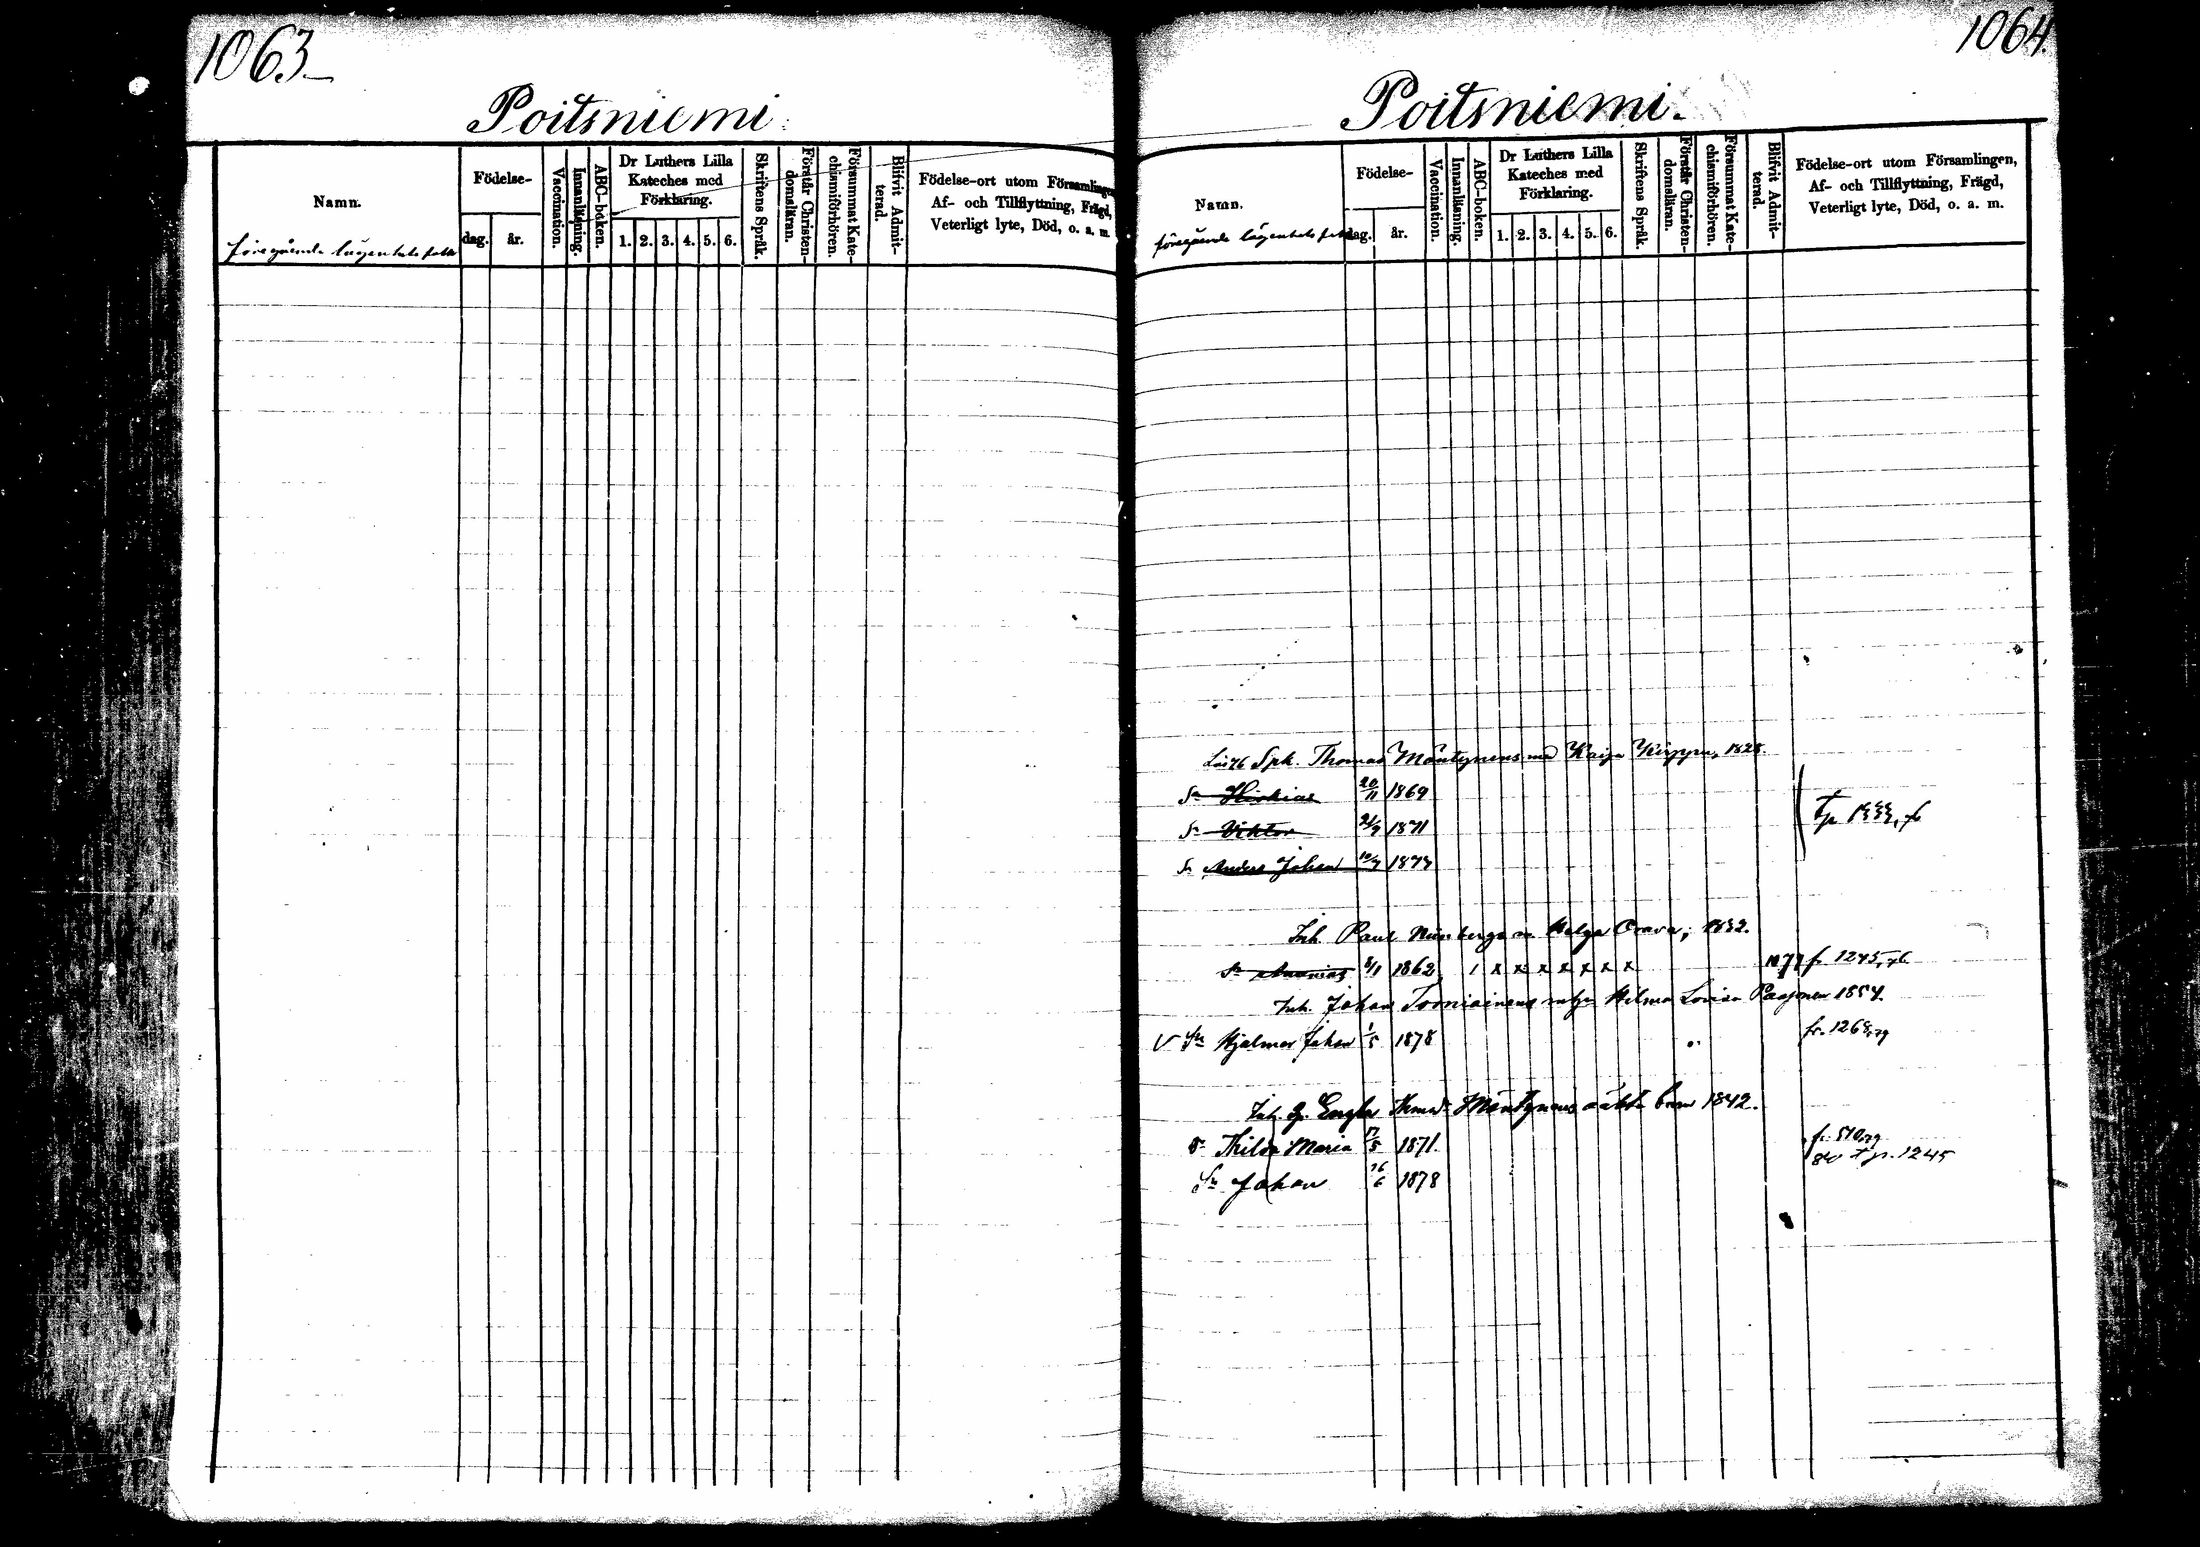 1063
Poitsniemi
Namn.
Födelse-
dag.
år.
Vaccination.
Innanläsning.
ABC-boken.
Dr Luthers Lilla
Kateches med
Förklaring.
1. 2. 3. 4. 5. 6.
Skriftens Språk.
Förstår Christen-
domsläran.
Försummat Kate-
chismiförhören.
Blifvit Admit-
terad.
Födelse-ort utom Församlingen,
Af- och Tillflyttning, Frägd,
Veterligt lyte, Död, o. a. m.
föregående lägenhets folk
1064.
Poitsniemi.
Namn.
Födelse-
dag.
år.
Vaccination.
Innanläsning.
ABC-boken.
Dr Luthers Lilla
Kateches med
Förklaring.
1. 2. 3. 4. 5. 6.
Skriftens Språk.
Förstår Christen-
domsläran.
Försummat Kate-
chismiförhören.
Blifvit Admit-
terad.
Födelse-ort utom Församlingen,
Af- och Tillflyttning, Frägd,
Veterligt lyte, Död, o. a. m.
föregående lägenhets folk
Thomas Mäntynens Kaisa 1828.
Sn 20/11 1869
Sn Viktor 21/9 1871
Sn Anders Johan 10/7 1877
Inh. Paul Helga Orava, 1832.
Sn Ananias 8/1 1862 1 x x x x x x x 1077 fr. 1245,76
Inh. Johan Torniainens Hilma Lovisa Paajonen 1854.
V Sn Hjalmar Johan 1/5 1878 fr. 1268,79
Inh. Mäntynens oäkta barn 1842.
Thilda Maria 17/5 1871. fr. 510,79
80 t p. 1245
Sn Johan 16/6 1878